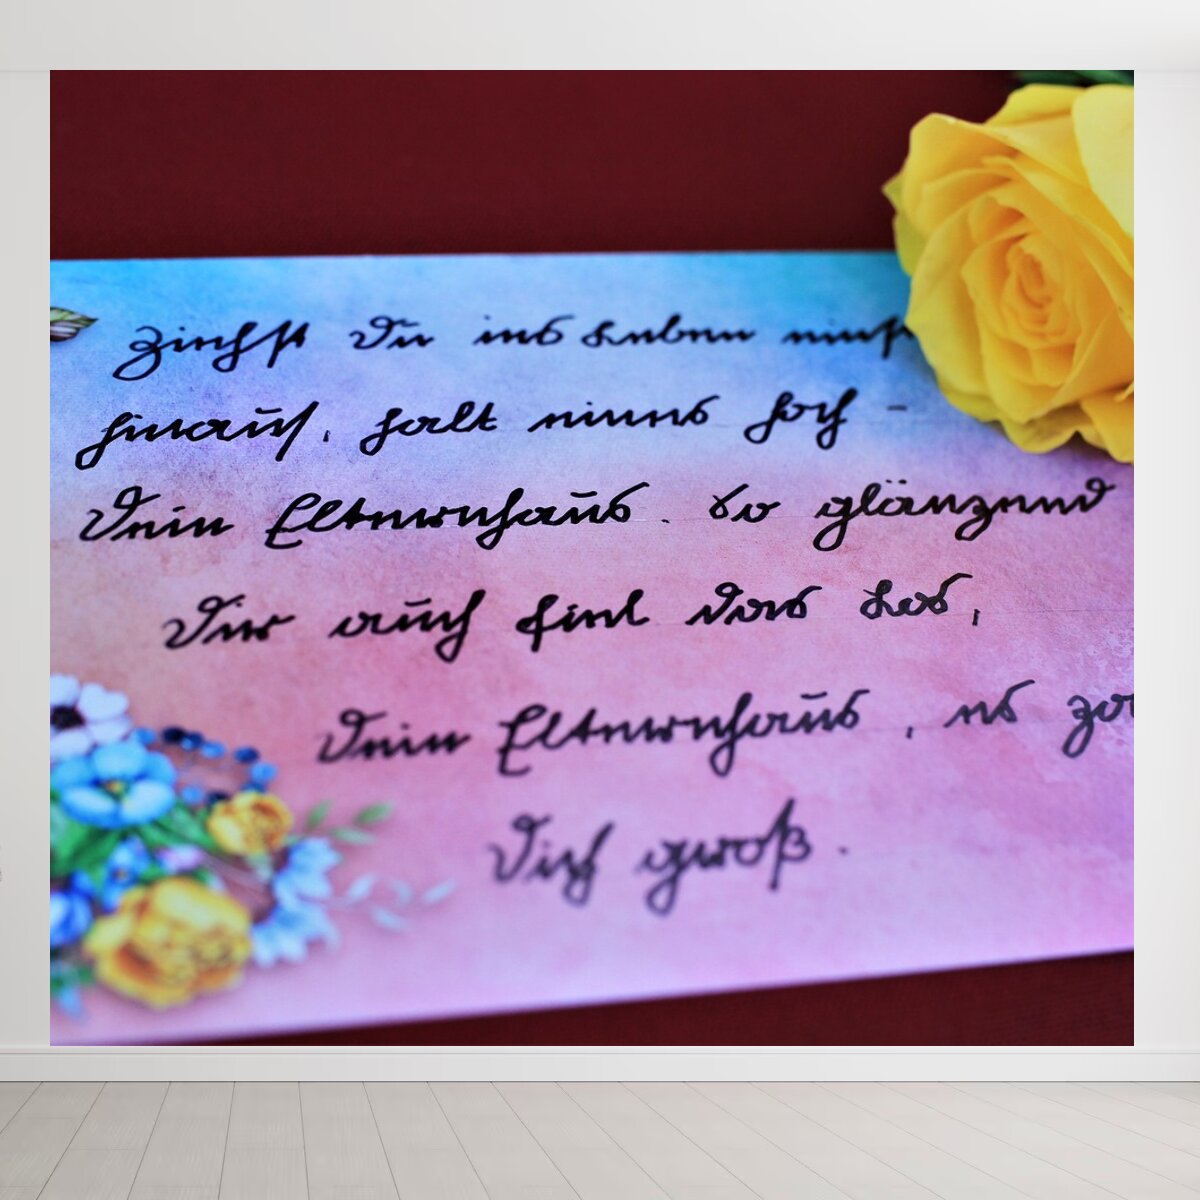 Ziehst Du ins Leben einst
hinaus, halt eines hoch -
Dein Elternhaus. So glänzend
Dir auch fiel das Los,
Dein Elternhaus, es zo
Dich groß.